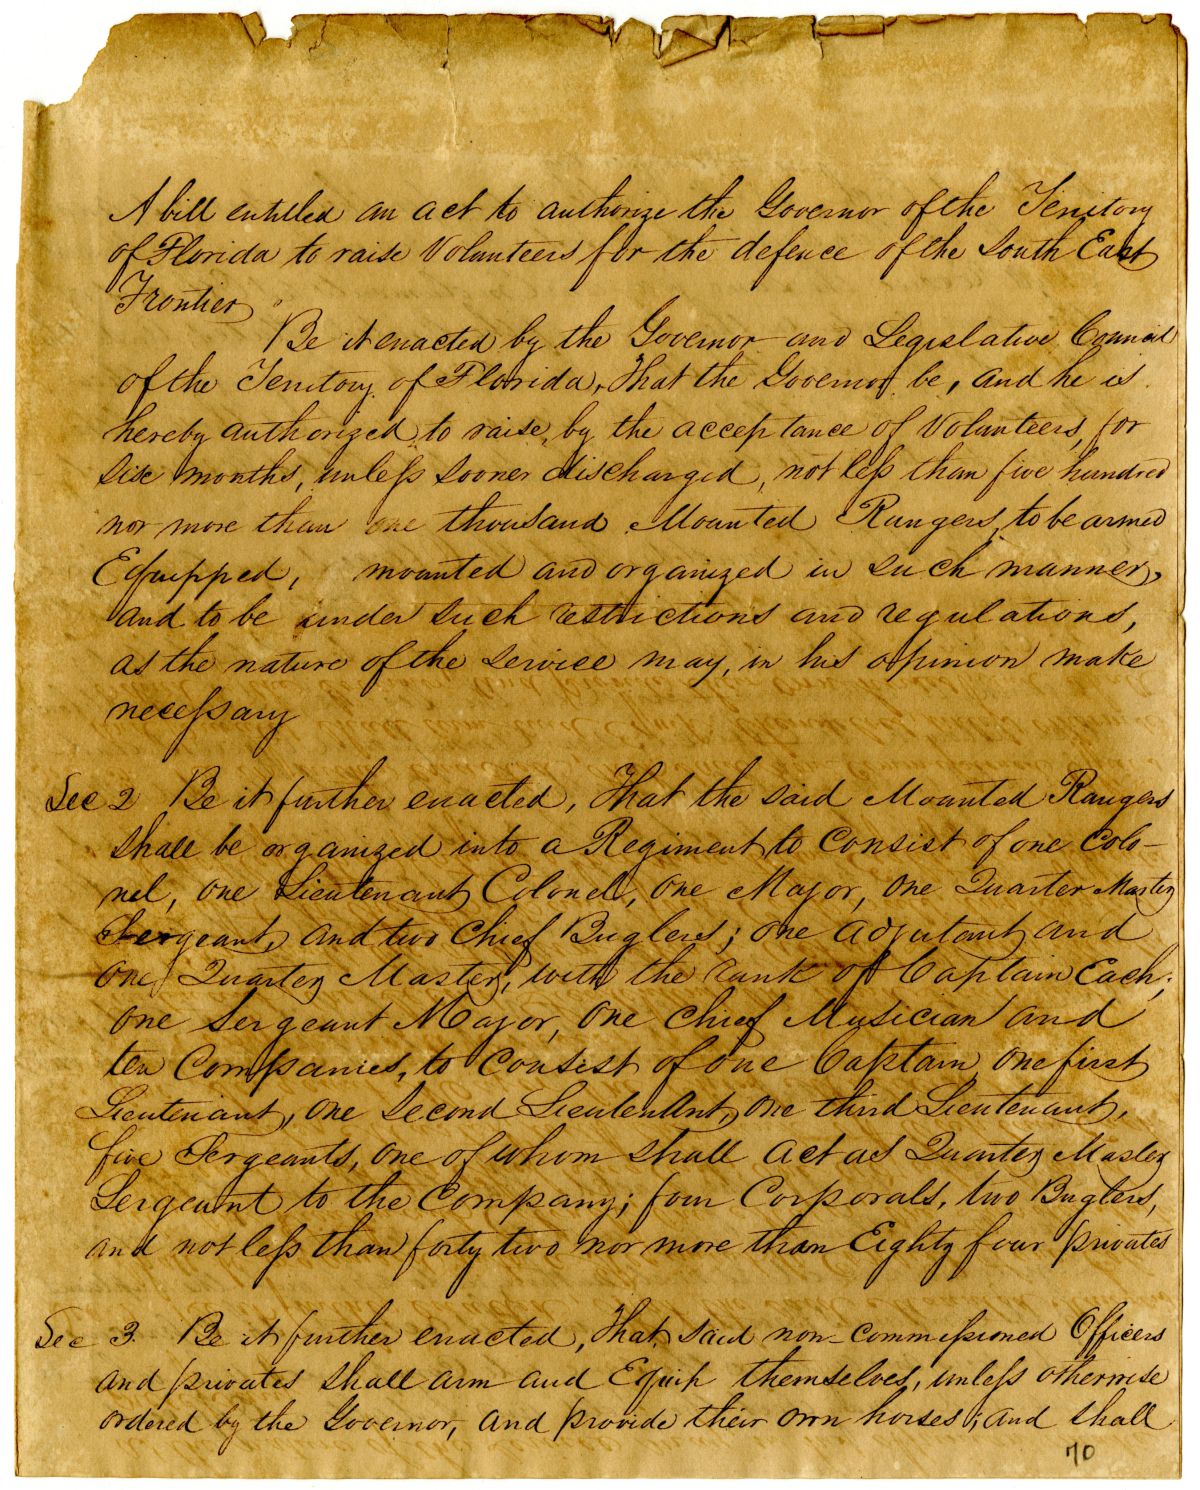 A bill entitled an act to authorize the Governor of the Territory
of Florida to raise Volunteers for the defence of the South East
Frontier
Be it enacted by the Governor and Legislative Council
of the Territory of Florida, That the Governor be, and he is
hereby authorized to raise, by the acceptance of Volunteers, for
Six months, unless sooner discharged, not less than five hundred
nor more than one thousand Mounted Rangers, to be armed
Equipped, mounted and organized in such manner,
and to be under such restrictions and regulations,
as the nature of the service may, in his opinion make
necessary
Sec 2 Be it further enacted, That the said Mounted Rangers
shall be organized into a Regiment to consist of one Colo-
nel, one Lieutenant Colonel, one Major, one Quarter Master
Sergeant, and two chief Buglers; one adjutant and
one Quarter Master, with the rank of Captain Each;
one Sergeant Major, one chief Musician and
ten Companies, to consist of one Captain, one first
Lieutenant, one Second Lieutenant, one third Lieutenant,
five Sergeants, one of whom shall act as Quarter Master
Sergeant to the company; four Corporals, two Buglers,
and not less than forty two nor more than Eighty four privates
Sec 3. Be it further enacted, That said non-commissioned Officers
and privates shall arm and Equip themselves, unless otherwise
ordered by the Governor, and provide their own horses; and shall
70